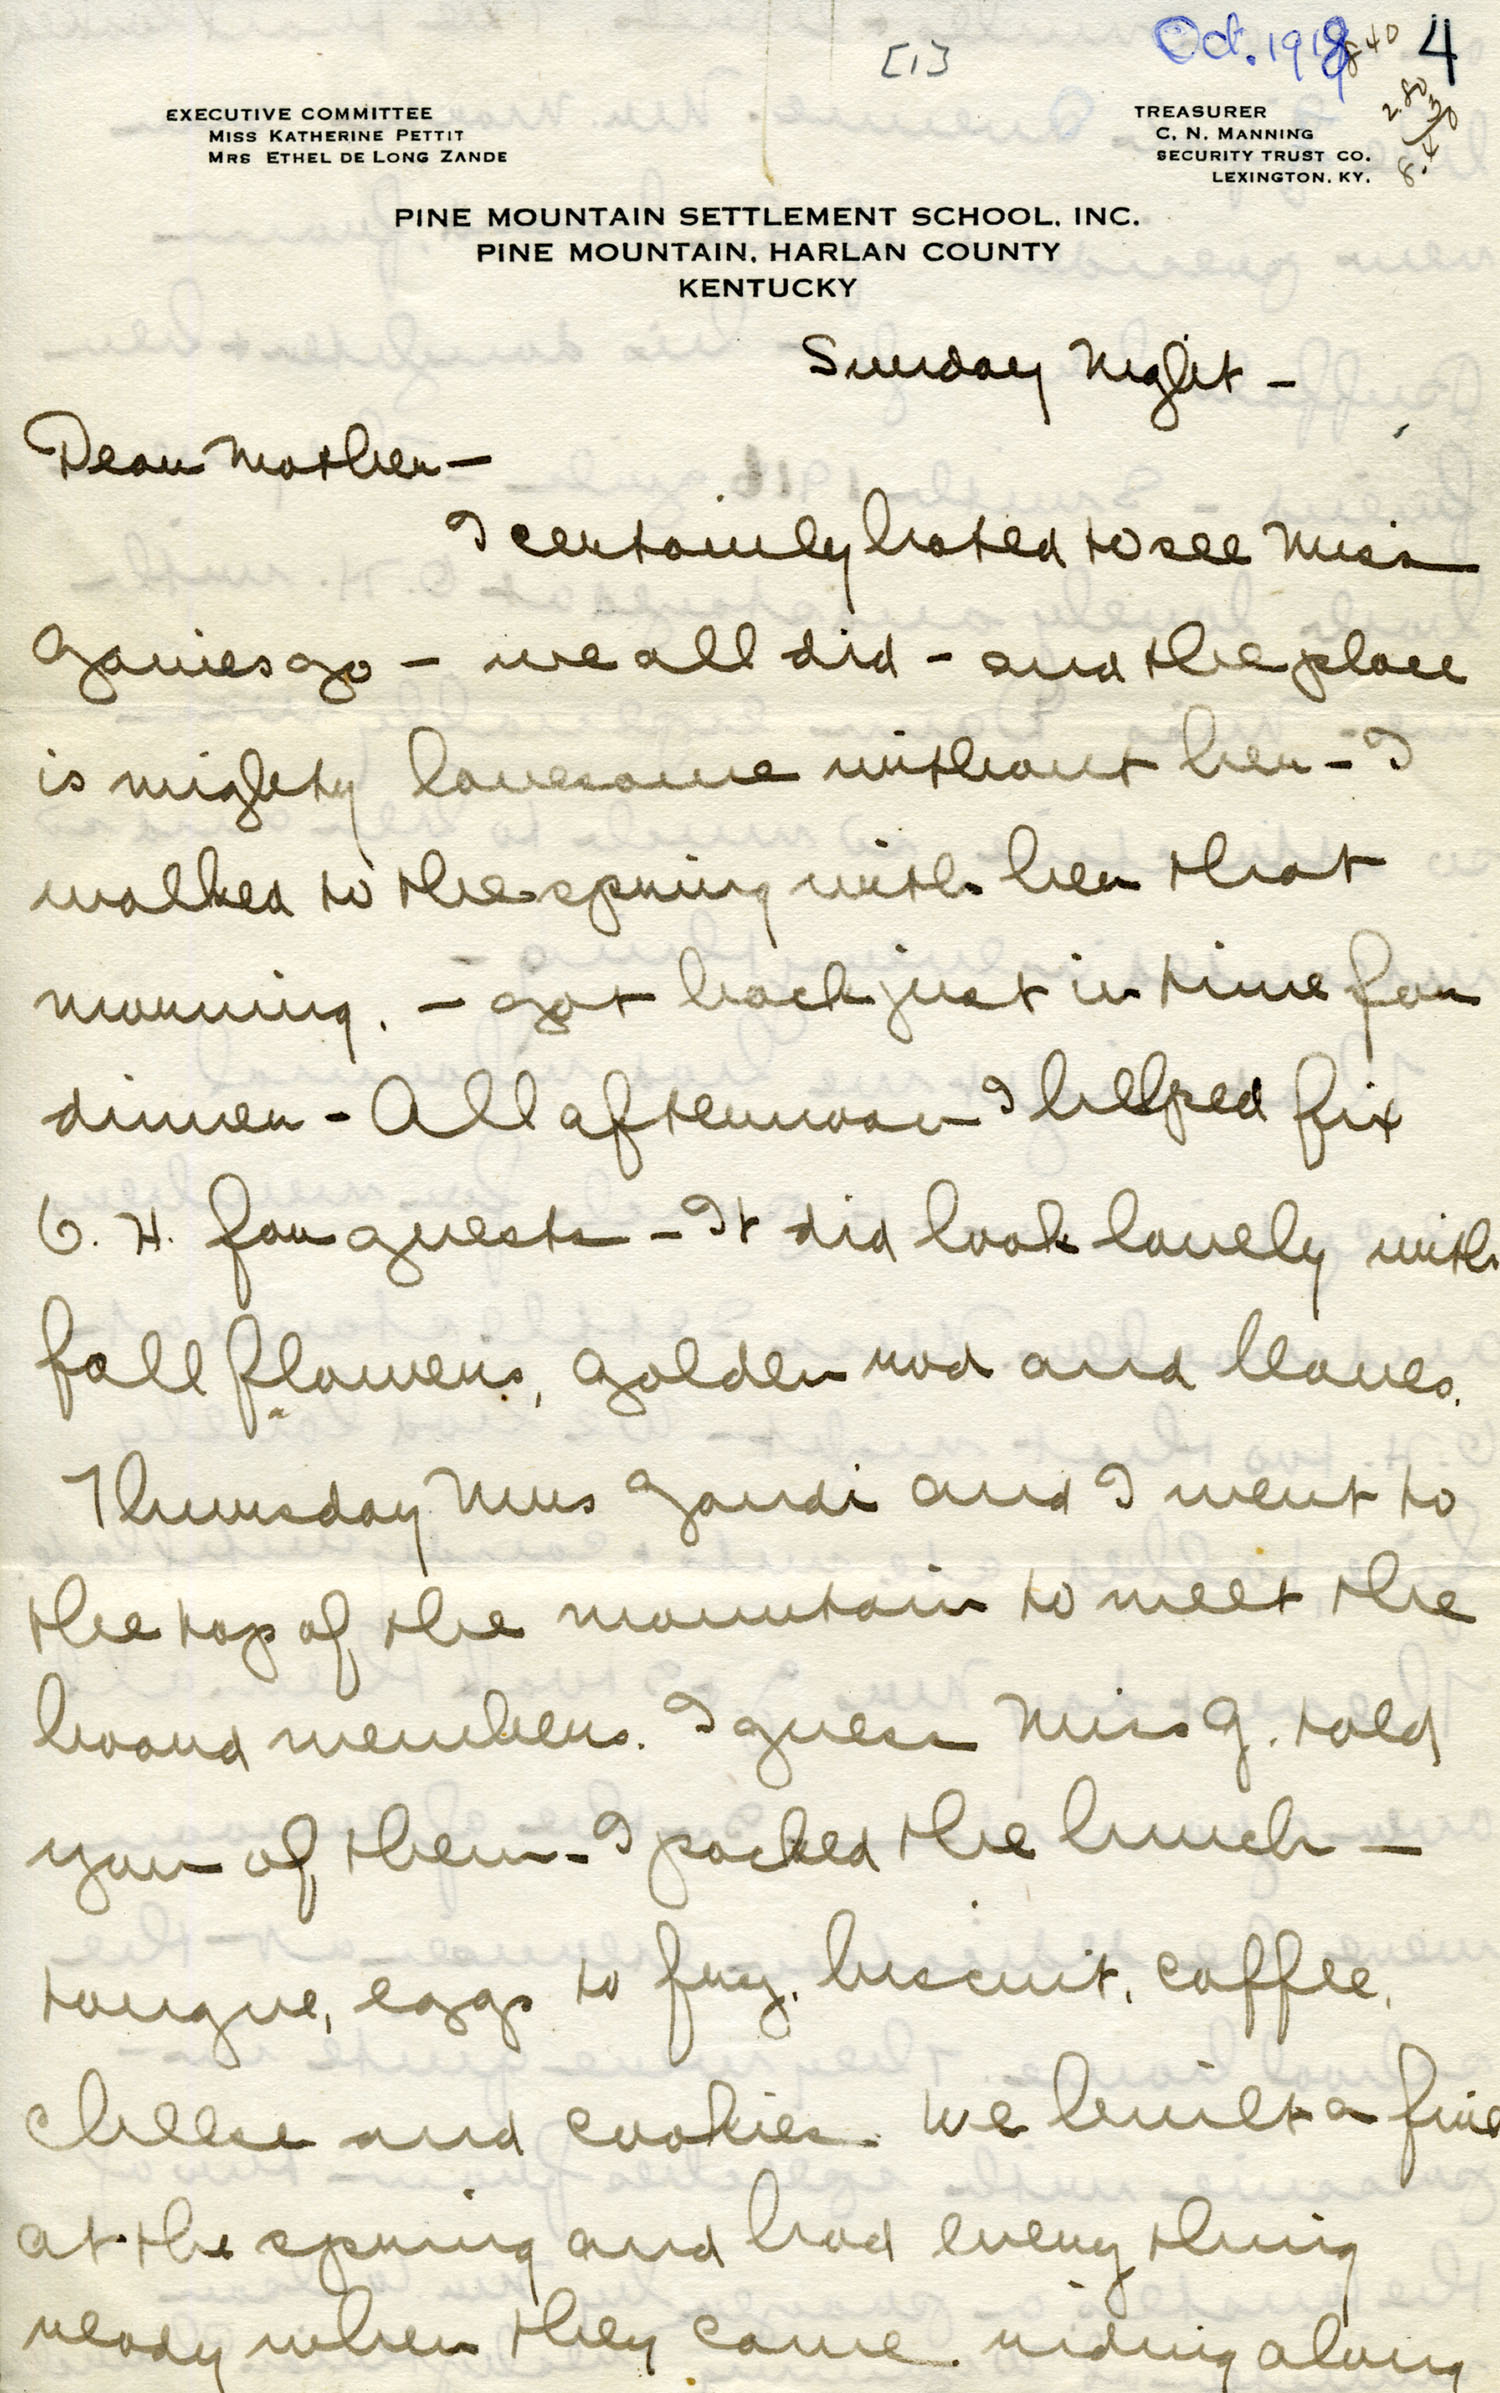 [1]
Oct. 1919
4
840
2.80
30
8.40
EXECUTIVE COMMITTEE
MISS KATHERINE PETTIT
MRS ETHEL DE LONG ZANDE
TREASURER
C. N. MANNING
SECURITY TRUST CO.
LEXINGTON. KY.
PINE MOUNTAIN SETTLEMENT SCHOOL. INC.
PINE MOUNTAIN. HARLAN COUNTY
KENTUCKY
Sunday Night -
Dear Mother -
I certainly hated to see Miss
Gaines go - we all did - and the place
is mighty lonesome without her - I
walked to the spring with her that
morning. - got back just in time for
dinner - All afternoon I helped fix
O. H. for guests - It did look lovely with
fall flowers, golden rod and leaves.
Thursday Miss Gaudi and I went to
the top of the mountain to meet the
board members. I guess Miss G. told
you of them - I packed the lunch -
tongue, eggs to fry, biscuit, coffee,
cheese and cookies. We built a fire
at the spring and had every thing
ready when they came riding along